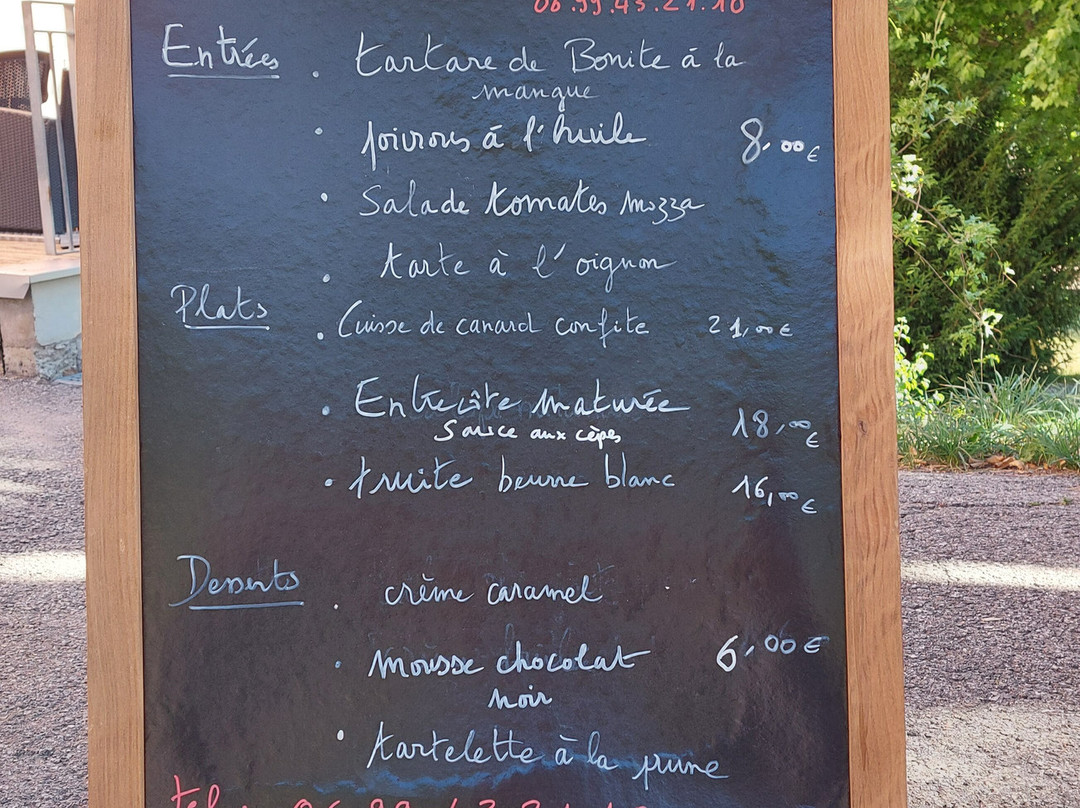 06.99.43.21.10
Entrées . tartare de Bonite à la
mangue
. poivrons à l'huile 8,00€
. Salade tomates mozza
. tarte à l'oignon
Plats
. Cuisse de canard confite 21,00€
. Entrecôte maturée
Sauce aux cèpes 18,00€
. truite beurre blanc 16,00€
Desserts . crème caramel
. mousse chocolat 6,00€
noir
. tartelette à la prune